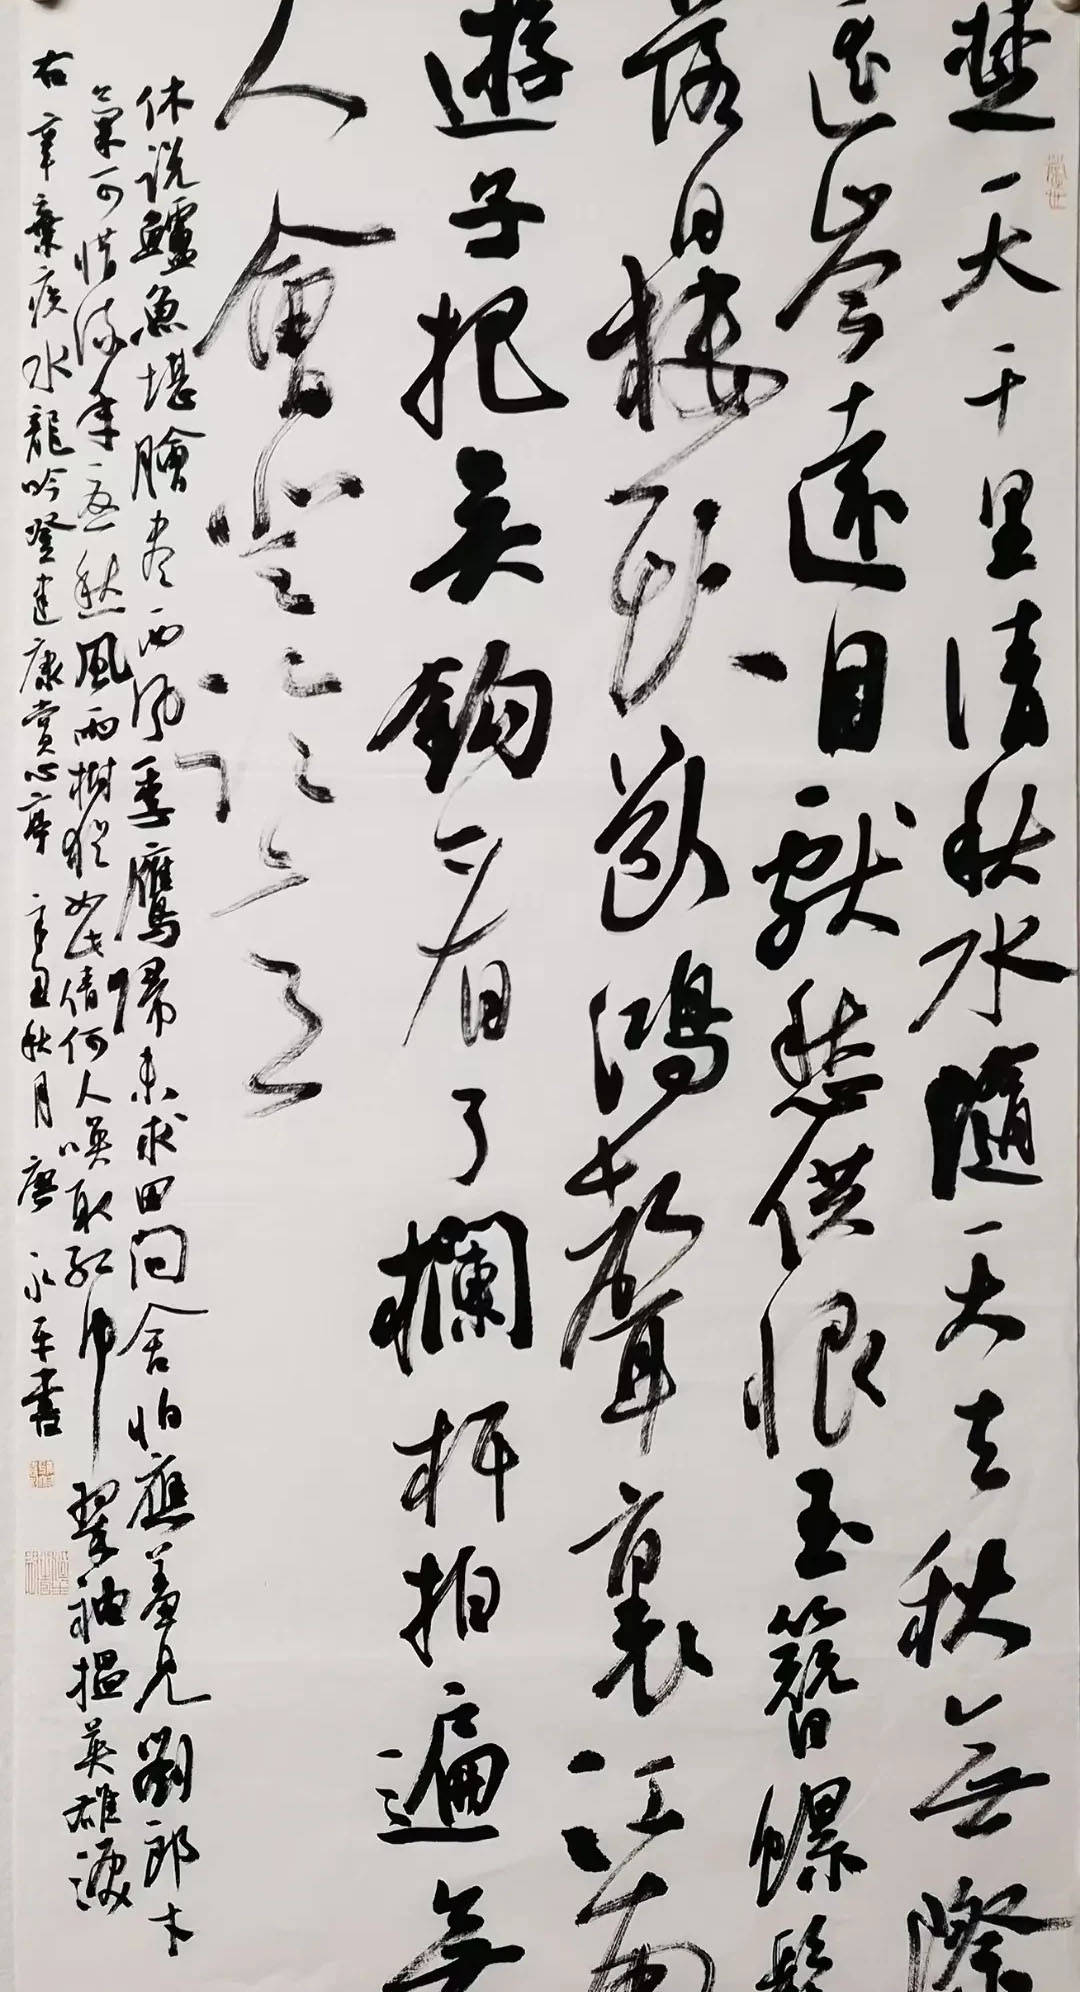 楚天千里清秋水隨天去秋無際
遥岑遠目獻愁供恨玉簪螺髻
落日樓頭斷鴻聲裏江南
遊子把吳鉤看了欄杆拍遍無
人會登臨意
休説鱸魚堪膾盡西風季鷹歸未求田問舍怕應羞見劉郎才
氣可惜流年憂愁風雨樹猶如此倩何人喚取紅巾翠袖揾英雄淚
右辛棄疾水龍吟登建康賞心亭 辛丑秋月 唐永平書